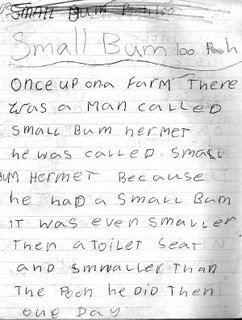 SMALL BUM Pooh loo
Small Bum loo Pooh
Once upon a Farm There
was a Man called
Small Bum hermet
he was called. Small
BUM Hermet Because
he had a Small Bum
iT was even Smaller
Then a ToileT SeaT
and Smwaller Than
The Pooh he Did Then
one Day